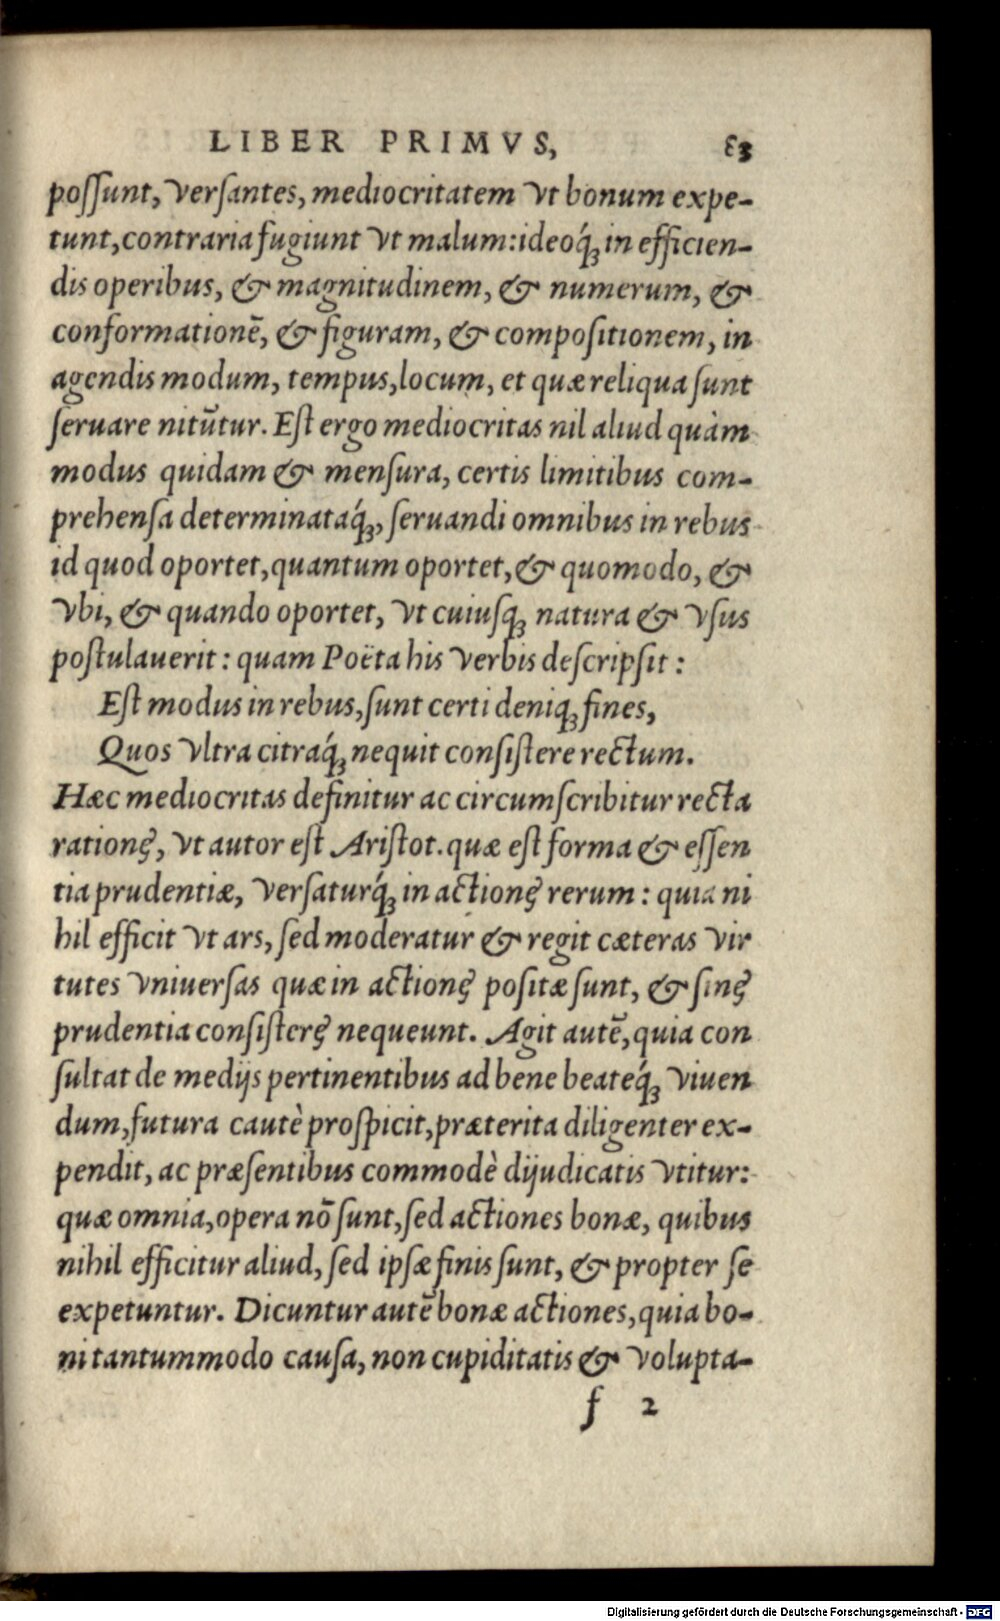 LIBER PRIMVS, 83
poſſunt, verſantes, mediocritatem vt bonum expe-
tunt, contraria fugiunt vt malum: ideoq́; in efficien-
dis operibus, & magnitudinem, & numerum, &
conformationē, & figuram, & compoſitionem, in
agendis modum, tempus, locum, et quæ reliqua ſunt
ſeruare nitūtur. Eſt ergo mediocritas nil aliud quàm
modus quidam & menſura, certis limitibus com-
prehenſa determinataq́;, ſeruandi omnibus in rebus
id quod oportet, quantum oportet, & quomodo, &
vbi, & quando oportet, vt cuiuſq; natura & vſus
poſtulauerit: quam Poëta his verbis deſcripſit:
Eſt modus in rebus, ſunt certi deniq; fines,
Quos vltra citraq́; nequit conſiſtere rectum.
Hæc mediocritas definitur ac circumſcribitur recta
rationę, vt autor eſt Ariſtot. quæ eſt forma & eſſen
tia prudentiæ, verſaturq́; in actionę rerum: quia ni
hil efficit vt ars, ſed moderatur & regit cæteras vir
tutes vniuerſas quæ in actionę poſitæ ſunt, & ſinę
prudentia conſiſterę nequeunt. Agit autē, quia con
ſultat de medijs pertinentibus ad bene beateq́; viuen
dum, futura cautè proſpicit, præterita diligenter ex-
pendit, ac præſentibus commodè dijudicatis vtitur:
quæ omnia, opera nō ſunt, ſed actiones bonæ, quibus
nihil efficitur aliud, ſed ipſæ finis ſunt, & propter ſe
expetuntur. Dicuntur autē bonæ actiones, quia bo-
ni tantummodo cauſa, non cupiditatis & volupta-
f 2
Digitalisierung gefördert durch die Deutsche Forschungsgemeinschaft - DFG